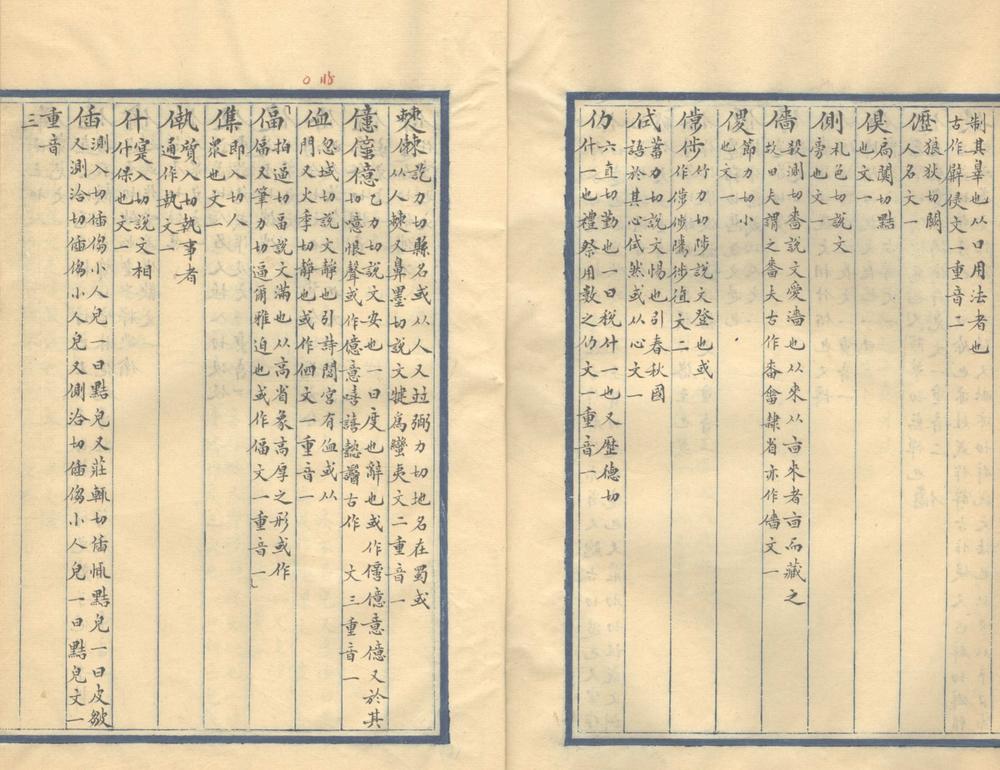 制其辠也从口用法者也
古作辟侵文一重音二
㒧狼狄切闕
人名文一
㑋扃闃切黠
也文一
側札色切說文
旁也文一
𠎸殺測切嗇說文愛濇也从來从㐭來者㐭而藏之
故田夫謂之嗇夫古作𤲸嗇隸省亦作𠎸文一
㑡節力切小
也文一
𠎀㣥竹力切陟說文登也或
作𠎀㣥隲徝文二
㐼蓄力切說文惕也引春秋國
語於其心㐼然或从心文一
仂六直切勤也一曰稅什一也又歷德切
什一也禮祭用數之仂文一重音一
僰㯤說力切縣名或从人又竝弼力切地名在蜀或
从人㯤又鼻墨切說文犍爲蠻夷文二重音一
億乙力切說文安也一曰度也辭也或作億意億又於其
切噫恨聲或作億意嘻譆懿譩古作 文三重音一
侐忽域切說文靜也引詩閟宮有侐或从
門又火季切靜也或作侐文一重音一
偪拍逼切畐說文滿也从高省象高厚之形或作
偪又筆力切逼爾雅迫也或作偪文一重音一
㒫即入切人
衆也文一
㙯質入切執事者
通作執文一
什寔入切說文相
什保也文一
偛測入切偛㑳小人皃一曰黠皃又莊輒切偛㥦黠皃一曰皮皺
又測洽切偛㑳小人皃又側洽切偛㑳小人皃一曰黠皃文一
重音
三